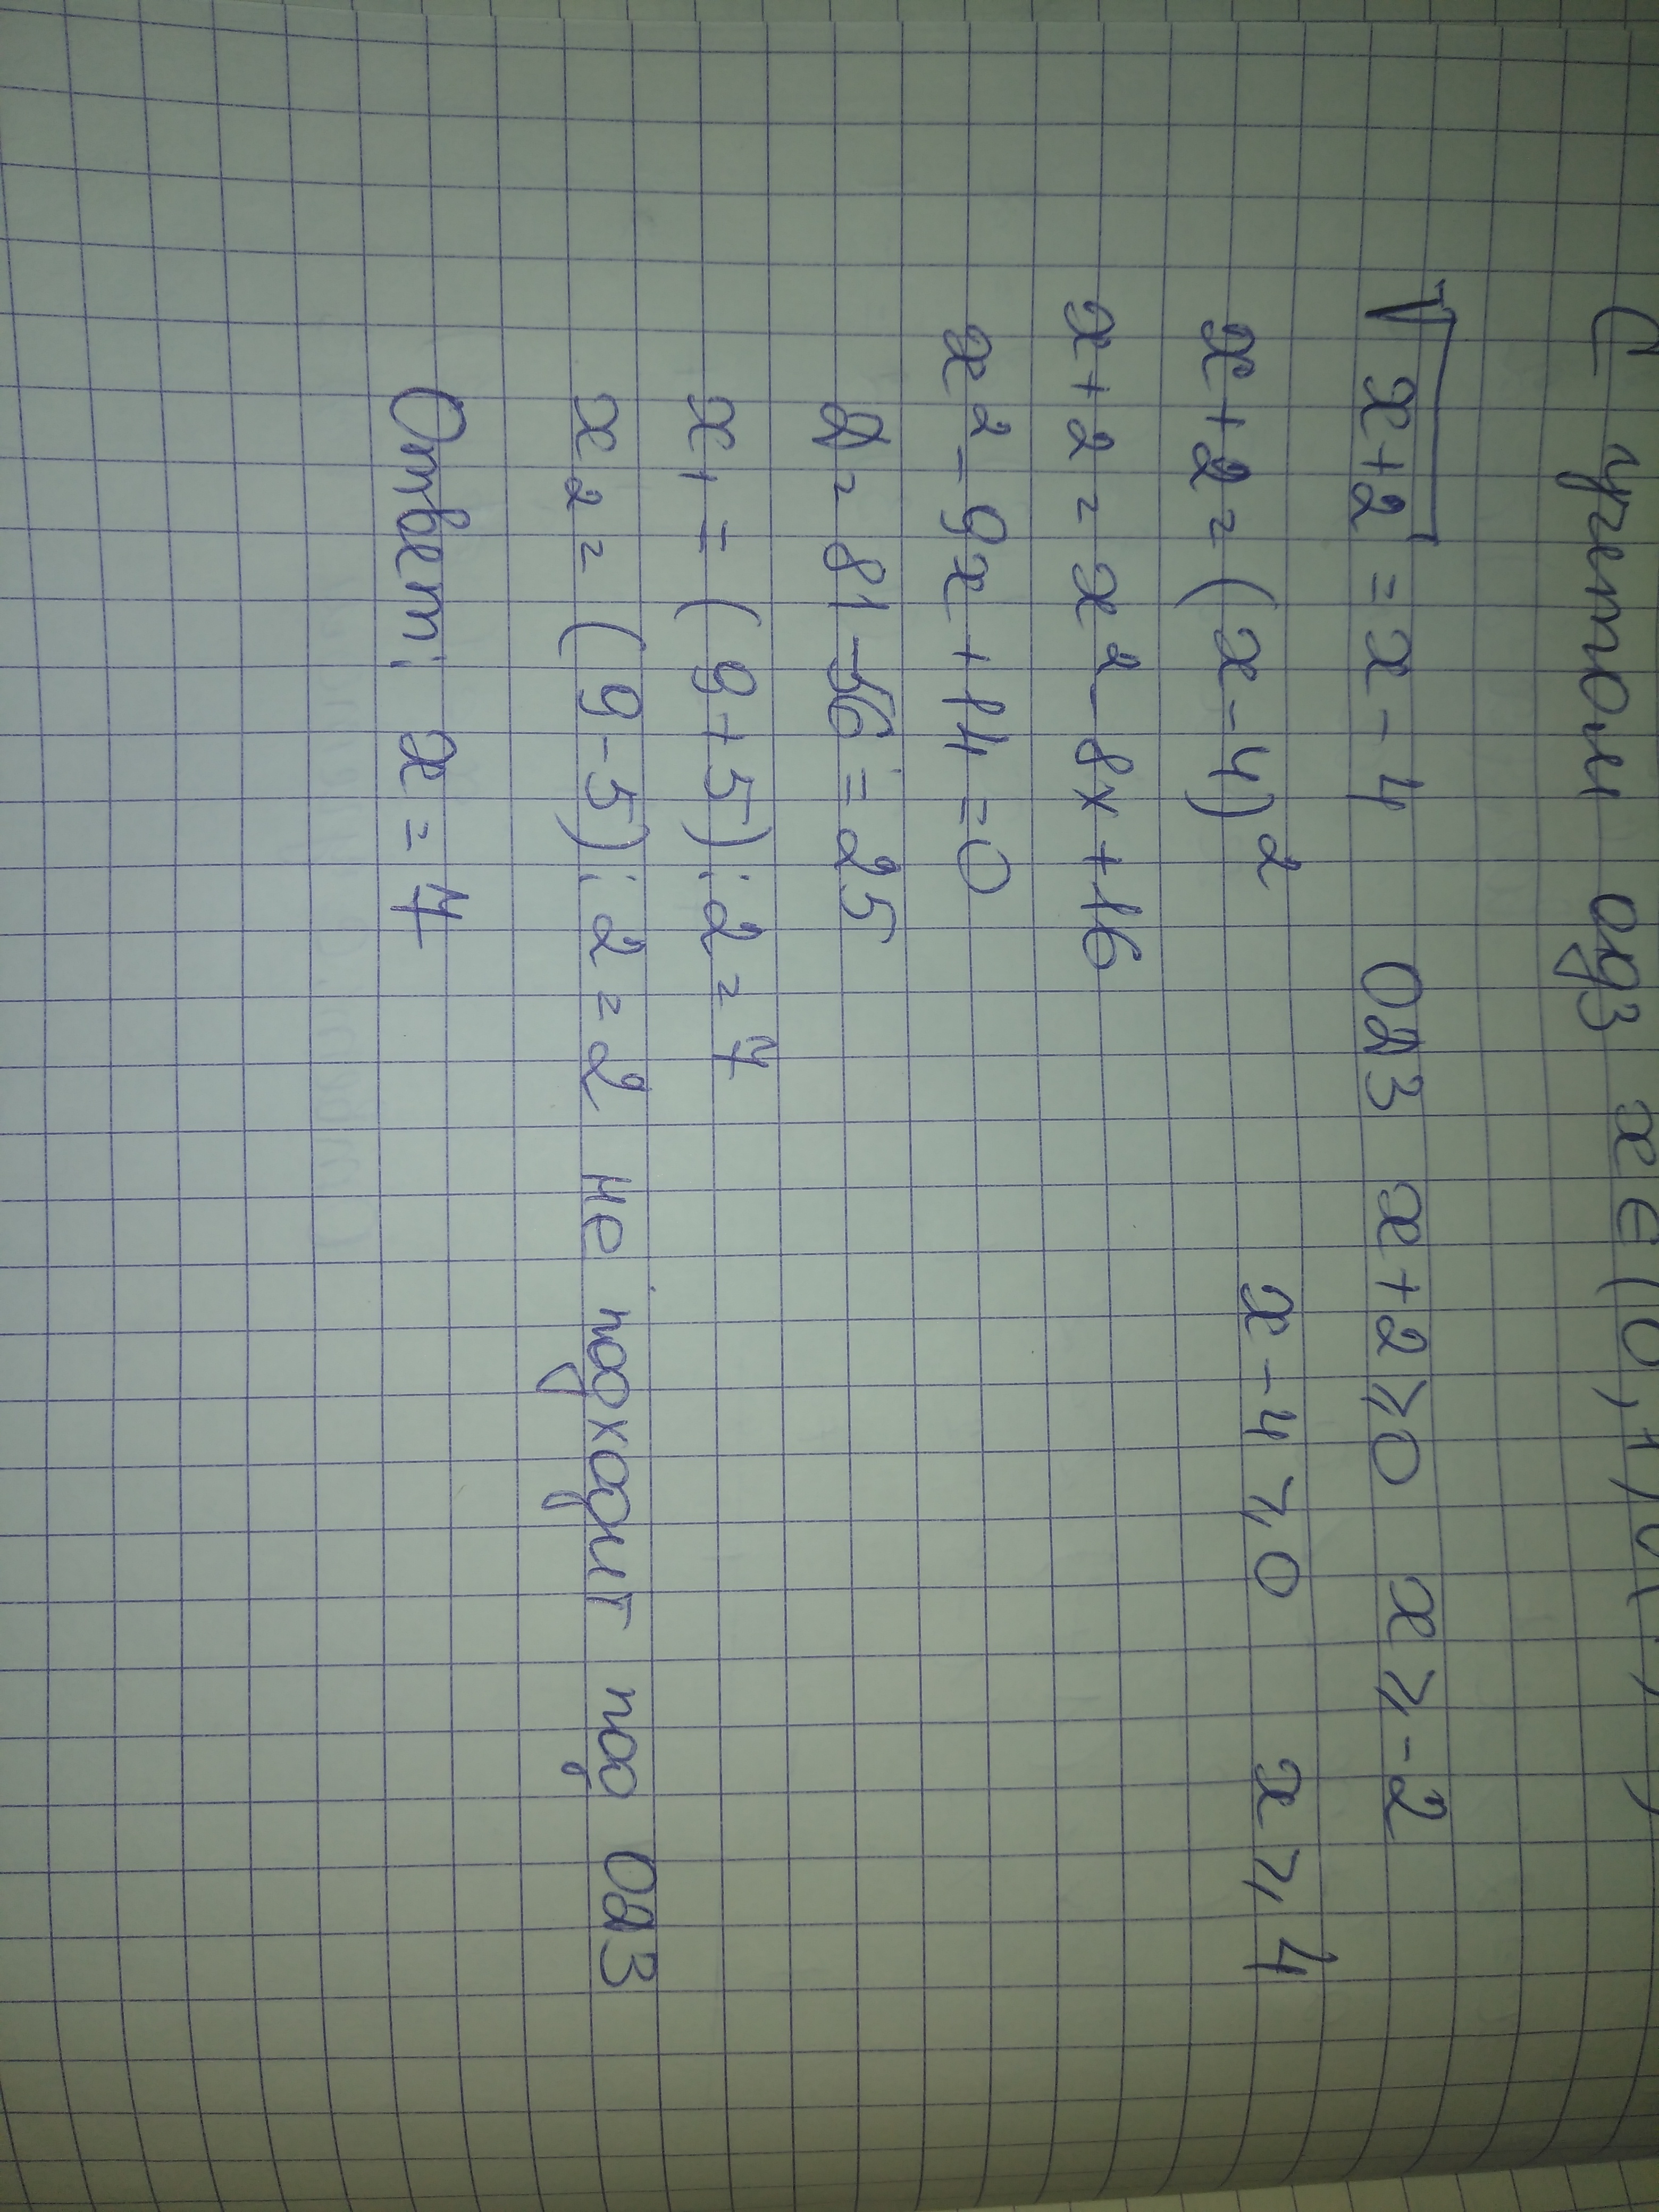 С учетом одз x ∈ (0, 1) ∪ (
√x+2 = x - 4 ОДЗ x+2 ≥ 0 x ≥ -2
x+2 = (x-4)² x - 4 ≥ 0 x ≥ 4
x+2 = x² - 8x + 16
x² - 9x + 14 = 0
D = 81 - 56 = 25
x₁ = (9+5):2 = 7
x₂ = (9-5):2 = 2 не подходит под ОДЗ
Ответ: x = 7